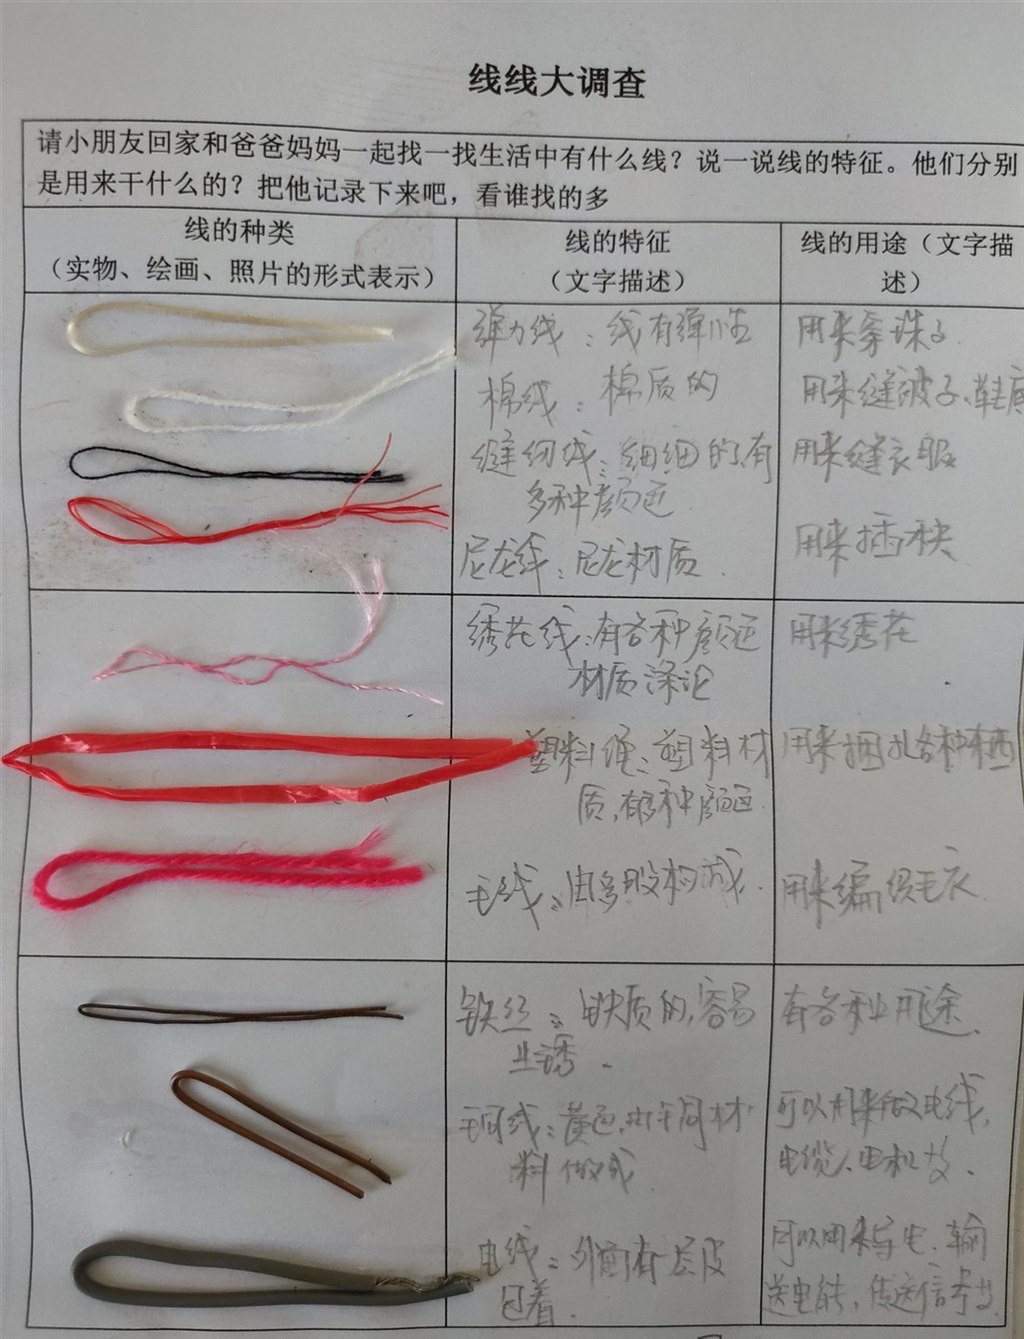 线线大调查
请小朋友回家和爸爸妈妈一起找一找生活中有什么线？说一说线的特征。他们分别
是用来干什么的？把他记录下来吧，看谁找的多
线的种类
（实物、绘画、照片的形式表示）
线的特征
（文字描述）
线的用途（文字描
述）
弹力线：线有弹性
用来穿珠子.
棉线：棉质的
用来缝被子、鞋底
缝纫线：细细的,有
多种颜色
用来缝衣服
尼龙线：尼龙材质.
用来插秧
绣花线：有各种颜色
材质涤沦
用来绣花
塑料绳：塑料材
质,有多种颜色.
用来捆扎各种东西
毛线：由多股构成.
用来编织毛衣.
铁丝：铁质的,容易
生锈.
有各种用途.
铜线：黄色,由铜材
料做成.
可以用来做电线,
电缆、电机等.
电线：外面有一层皮
包着.
可以用来导电、输
送电能、传送信号等.